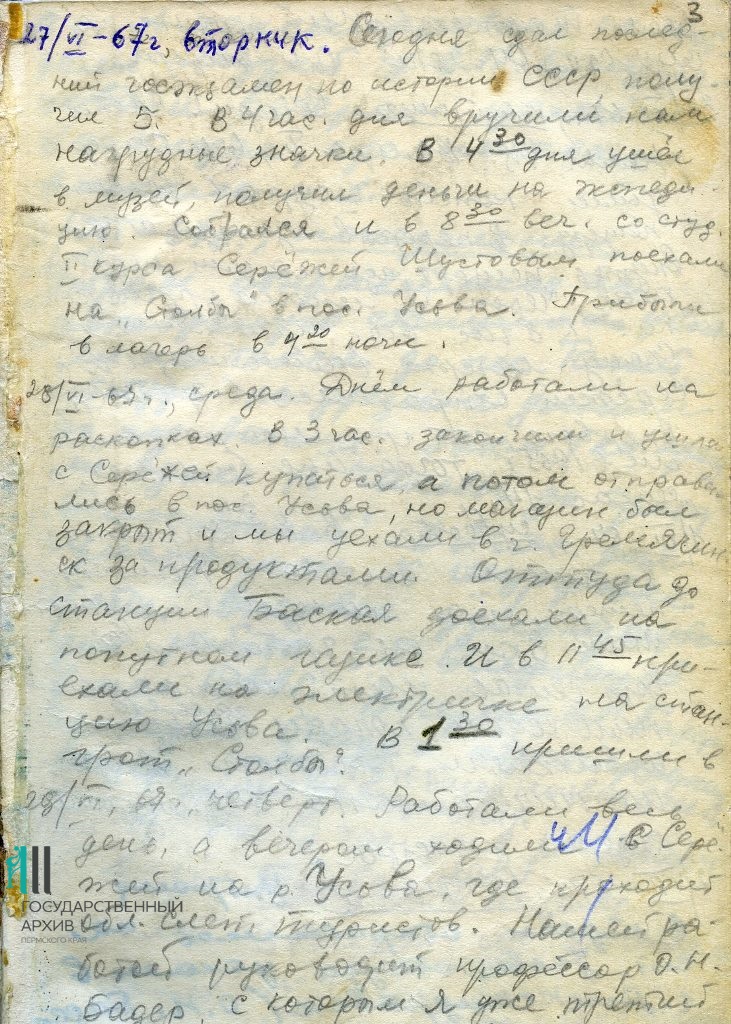 3
27/VI-67г, вторник. Сегодня сдал послед-
ний госэкзамен по истории СССР, полу-
чил 5. В 4 час. дня вручили нам
нагрудные значки. В 4 30 дня ушёл
в музей, получил деньги на экспеди-
цию. Собрался и в 8 30 веч. со студ.
II курса Серёжей Шустовым поехали
на „Столбы" в пос. Усьва. Прибыли
в лагерь в 4 20 ночи.
28/VI-67г., среда. Днём работали на
раскопках. В 3 час. закончили и ушли
с Серёжей купаться, а потом отправи-
лись в пос. Усьва, но магазин был
закрыт и мы уехали в г. Гремячин-
ск за продуктами. Оттуда до
станции Баская доехали на
попутном газике. И в 11 45 при-
ехали на электричке на стан-
цию Усьва. В 1 30 пришли в
грот „Столбы".
29/VI, 67г., четверг. Работали весь
день, а вечером ходили с Серё-
жей на р. Усьва, где проходит
обл. слёт туристов. Нашей ра-
ботой руководит профессор О.Н.
Бадер, с которым я уже третий
ГОСУДАРСТВЕННЫЙ
АРХИВ
ПЕРМСКОГО КРАЯ